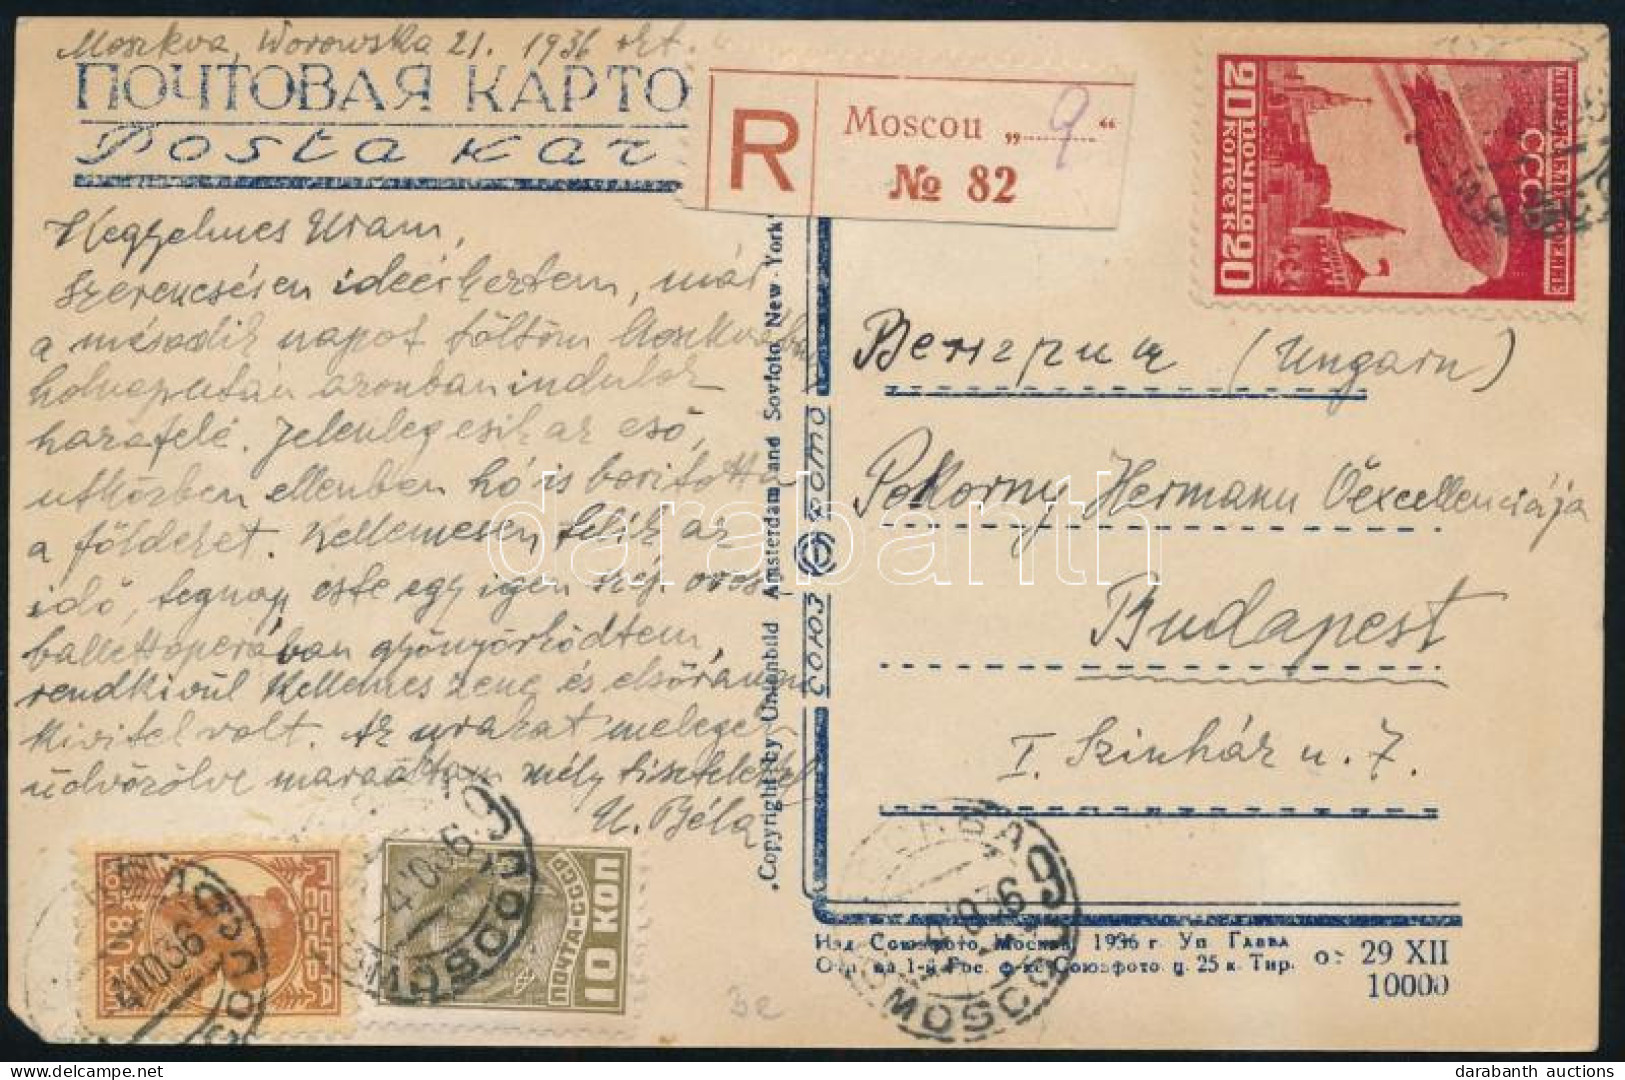 Moszkva, Worowska 21. 1936 okt.
ПОЧТОВАЯ КАРТО
Posta kar
R
Moscou „ 9 “
№ 82
СССР
20 почта 20
копеек
Kegyelmes Uram,
szerencsésen ideérkeztem, már
a második napot töltöm Moszkvában
holnapután azonban indulok
hazafelé. Jelenleg esik az eső,
utközben ellenben hó is boritotta
a földeket. Kellemesen telik az
idő, tegnap este egy igen szép orosz
ballettoperában gyönyörködtem,
rendkivül kellemes zene és elsőrangu
kivitel volt. Az urakat melegen
üdvözölve maradtam mély tisztelettel
U. Béla
Венгрия (Ungarn)
Pokorny Hermann Őexcellenciája
Budapest
I. Szinház u. 7.
Copyright by Unionbild Amsterdam and Sovfoto New-York
СОЮЗ ФОТО
Изд. Союзфото, Москва, 1936 г. Уп. Главл
от 29 XII
Отп. на 1-й Гос. ф-ке Союзфото ц. 25 к. Тир.
10000
80 КОП
ПОЧТА-СССР
10 КОП
4 10 36 9
MOSCOU
4 10 36
4 10 36 9
MOSCOU
Зе
darabanth
www.darabanth.com
darabanth auctions